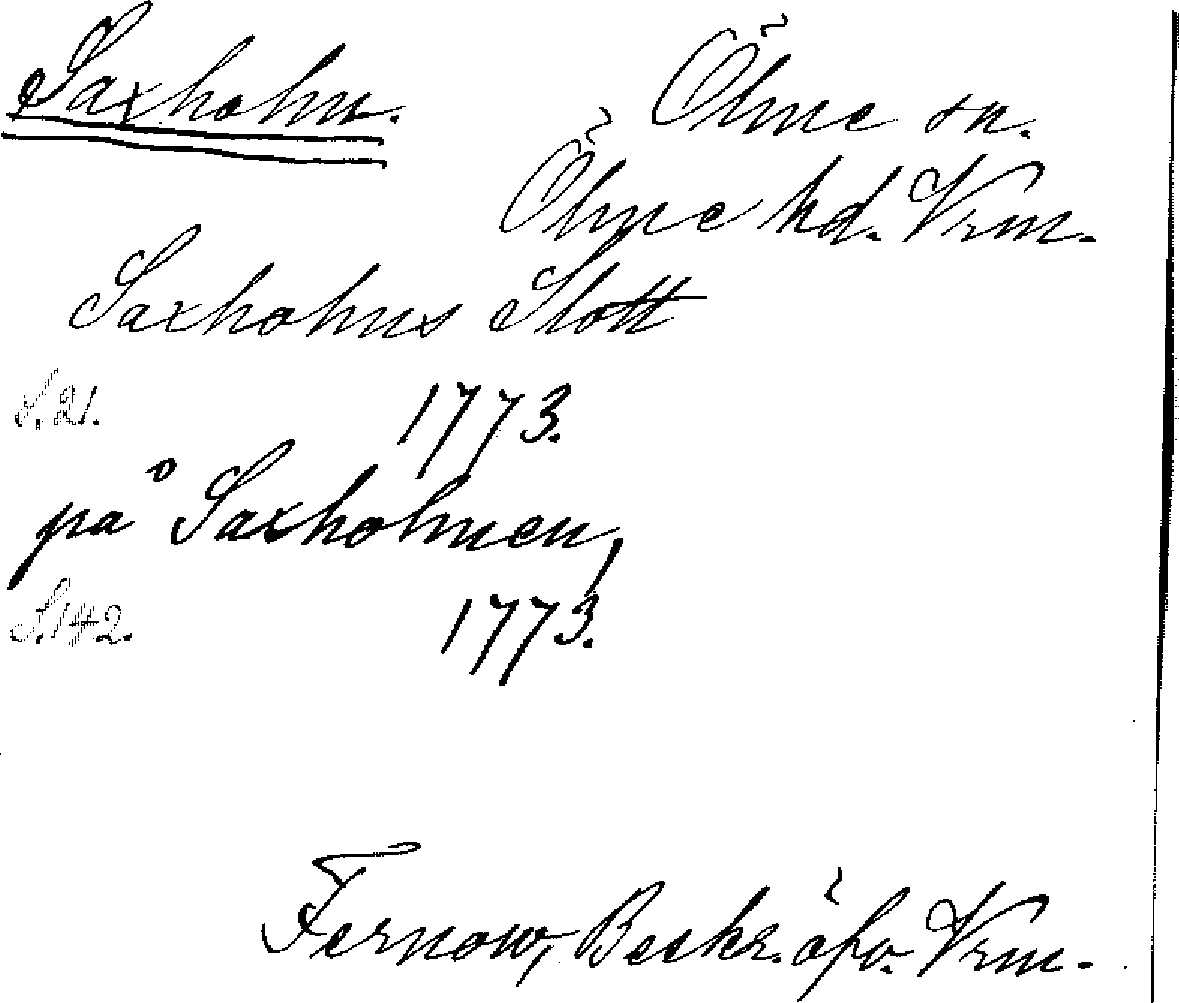 Saxholm.
Ölme sn.
Ölme hd. Vrm.
Saxholms Slott
S. 21.
1773.
på Saxholmen,
S. 142.
1773.
Fernow, Beskr. öfv. Vrm.